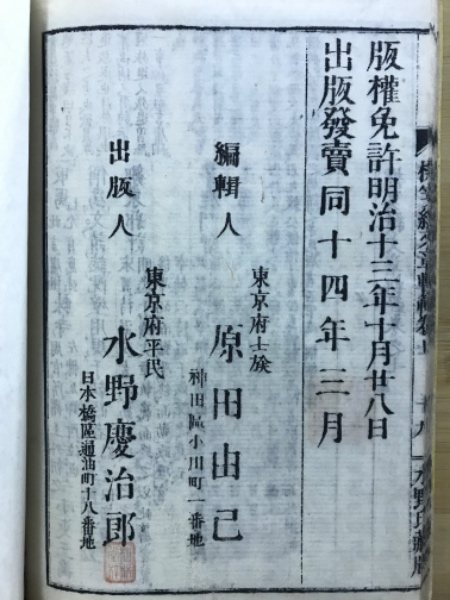 版權免許明治十三年十月廿八日
出版發賣同十四年三月
編輯人
東京府士族
原田由己
神田區小川町一番地
出版人
東京府平民
水野慶治郎
日本橋區通油町十八番地
水野氏藏版